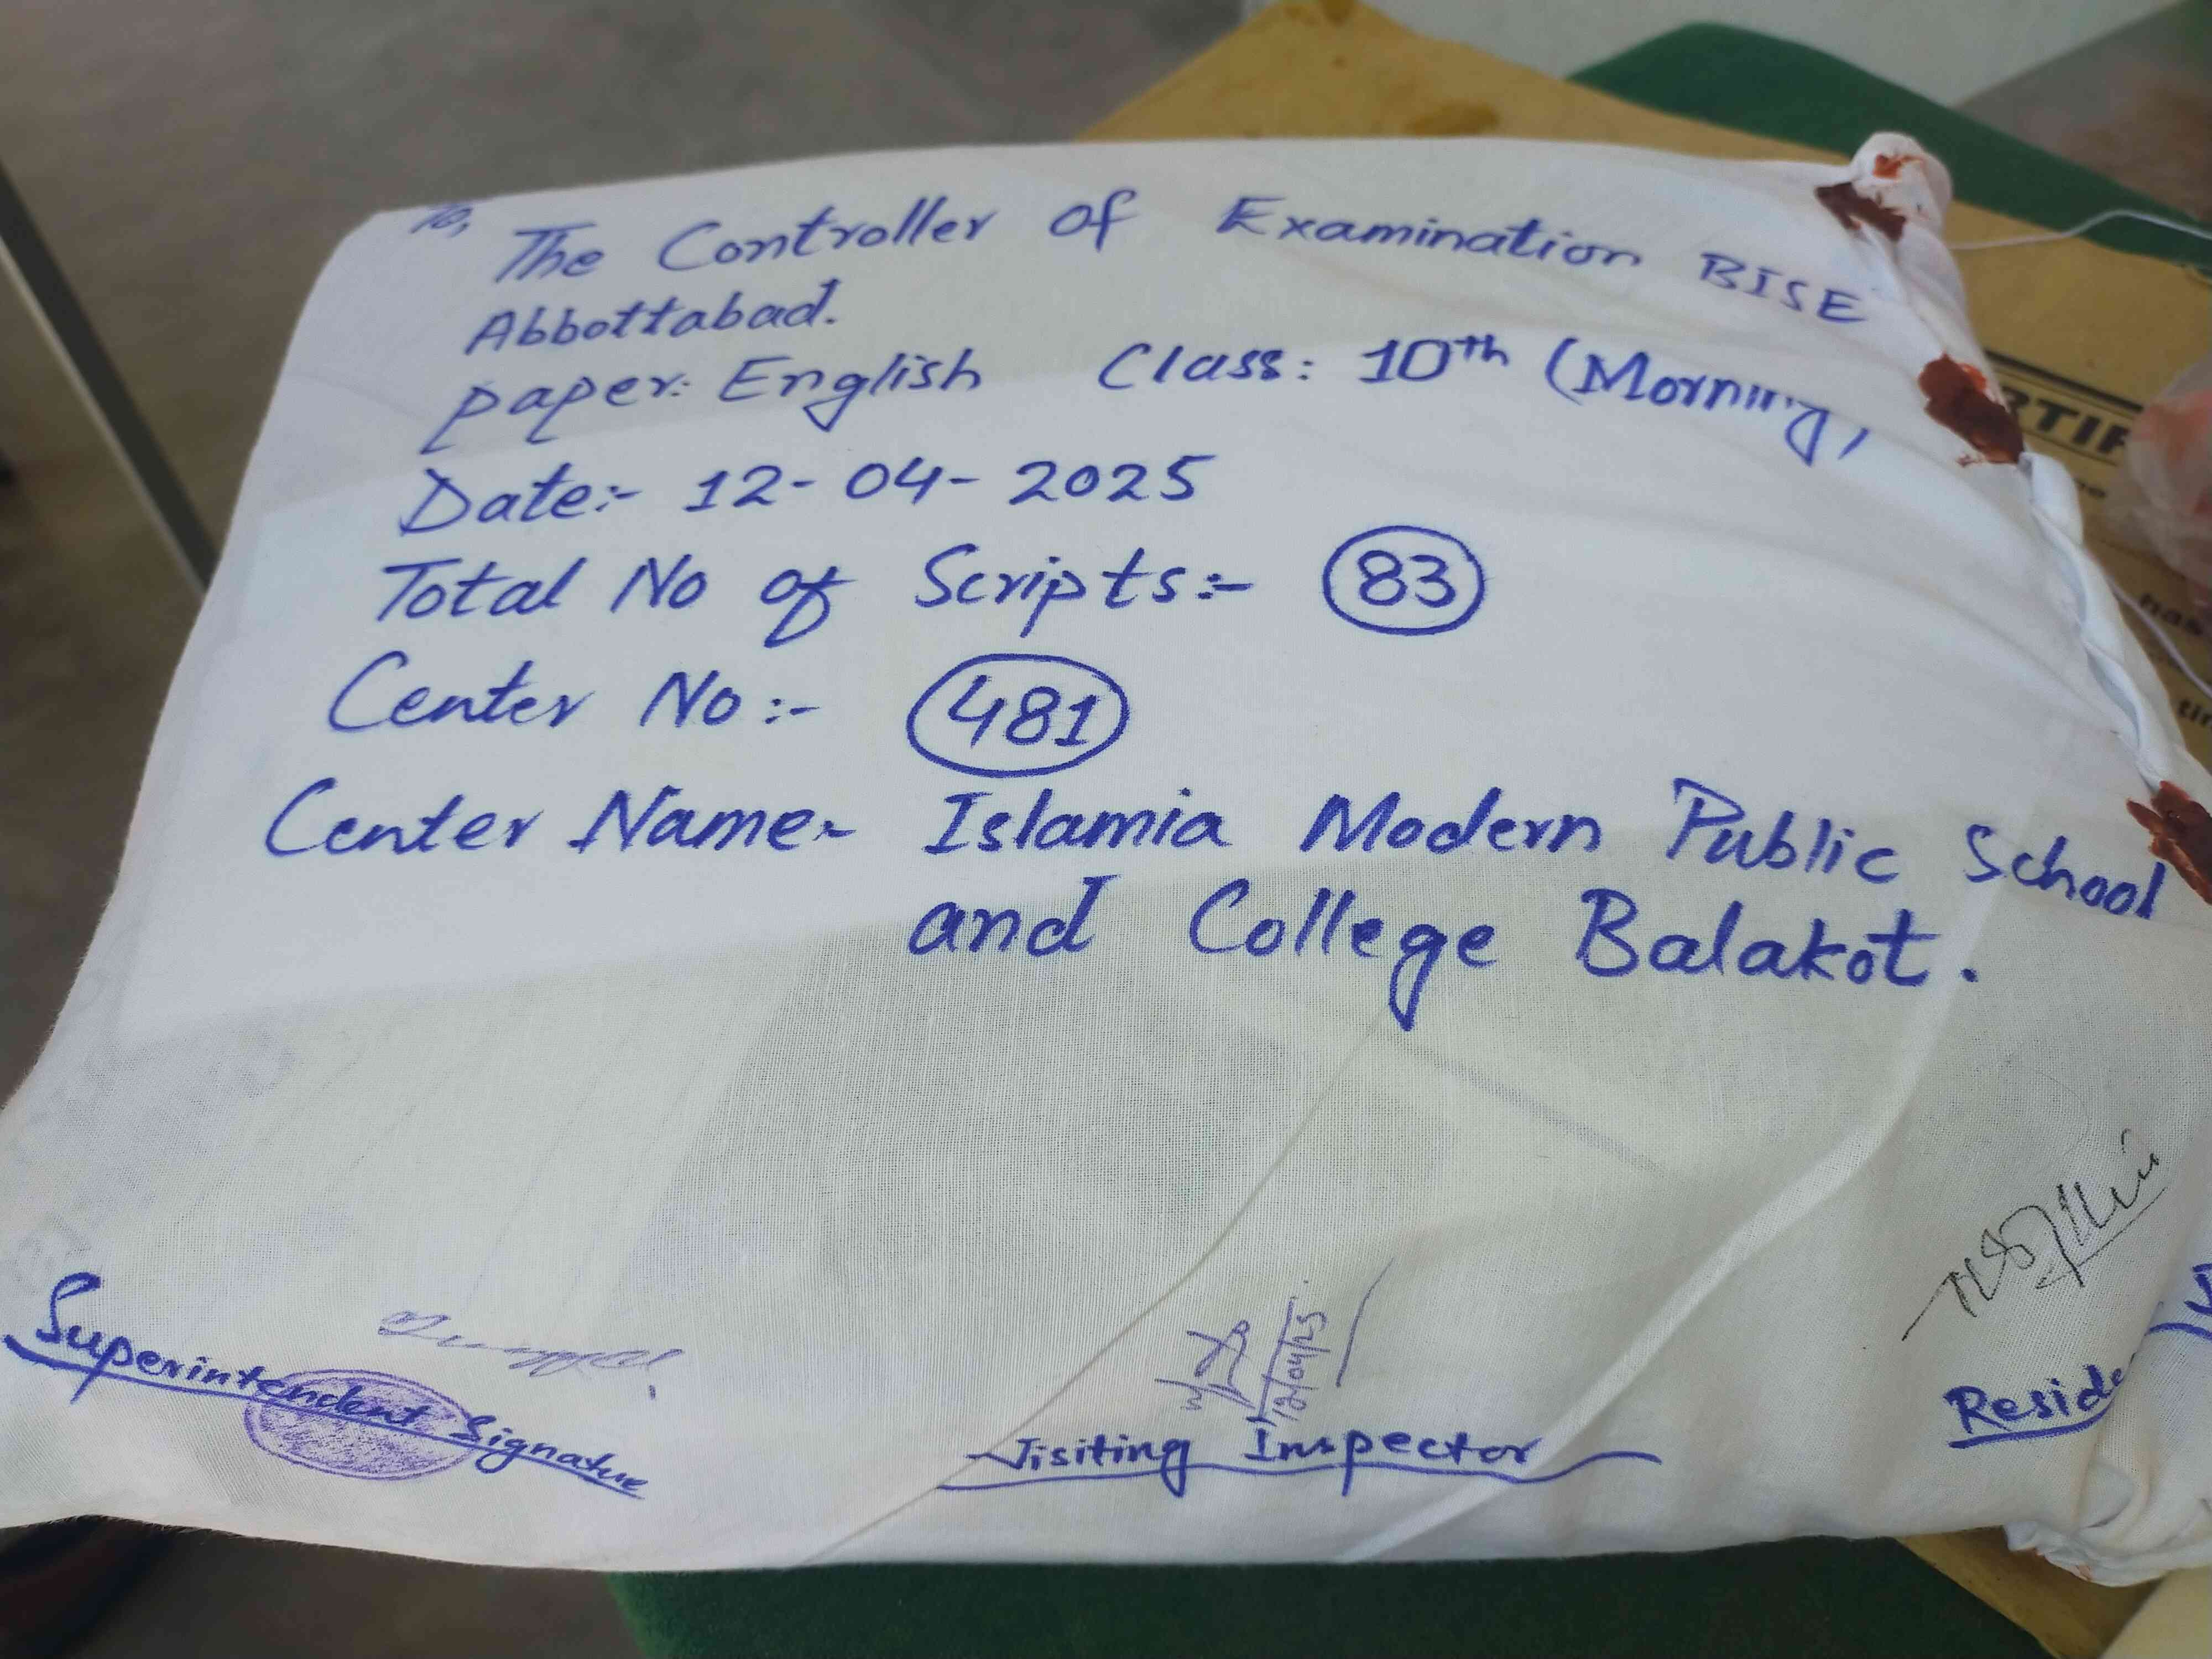 To,
The Controller of Examination BISE
Abbottabad.
paper: English Class: 10th (Morning)
Date:- 12-04-2025
Total No of Scripts:- 83
Center No:- 481
Center Name:- Islamia Modern Public School
and College Balakot.
12/04/25
Superintendent Signature
Visiting Inspector
Reside
RTIF
has